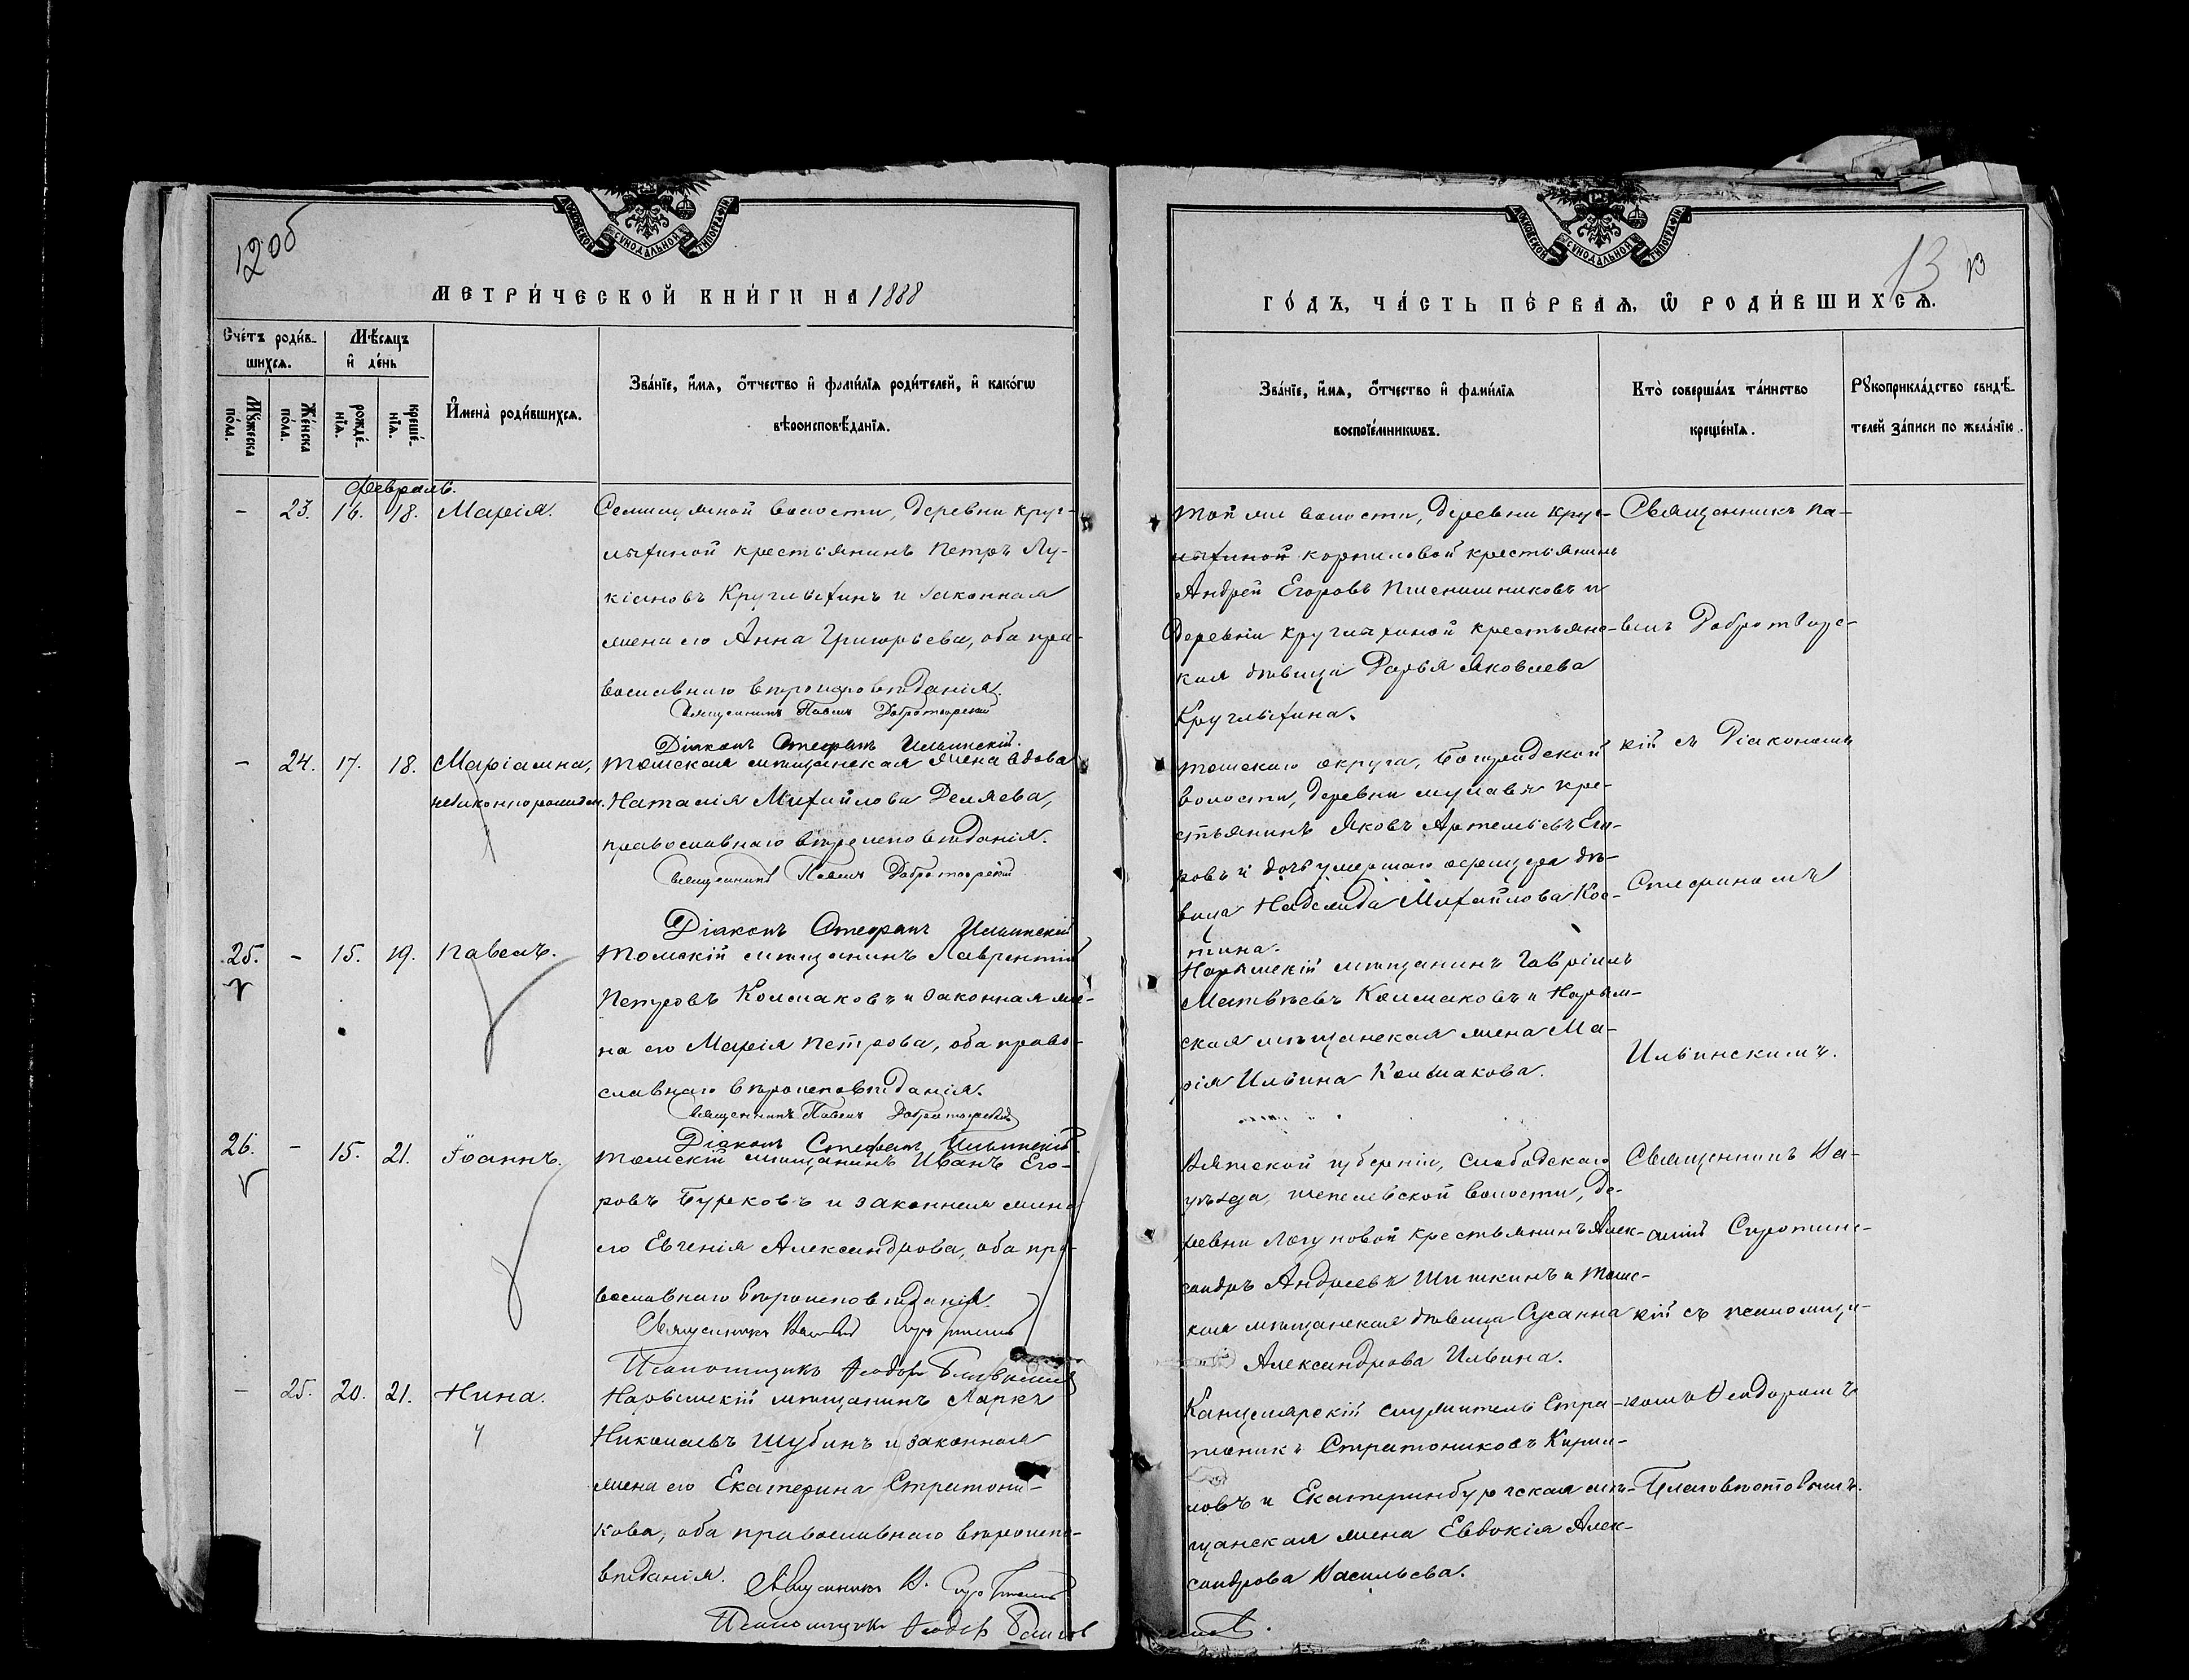 12об
МОСКОВСКОЙ СѴНОДАЛЬНОЙ ТИПОГРАФІИ
МЕТРИ́ЧЕСКОЙ КНИ́ГИ НА 1888
Сче́тъ роди́в-
шихсѧ.
Мѣ́сѧцъ
и҆ де́нь
Мꙋ́жеска
по́ла.
Же́нска
по́ла.
рожде́-
нїѧ.
креще́-
нїѧ.
И҆мена̀ роди́вшихсѧ.
Зва́нїе, и҆́мѧ, ѻ҆́тчество и҆ фами́лїѧ роди́телей, и҆ како́гѡ
вѣроисповѣ́данїѧ.
Февраль.
- 23. 16. 18. Марія.
Семилужной волости, деревни Круг-
лыхиной крестьянинъ Петръ Лу-
кіановъ Круглыхинъ и законная
жена его Анна Григорьева, оба пра-
вославнаго вѣроисповѣданія.
Священникъ Павелъ Добротворскій
Діаконъ Стефанъ Ильинскій.
- 24. 17. 18. Маріамна,
незаконнорожден.
Томская мѣщанская жена вдова
Наталія Михайлова Деляева,
православнаго вѣроисповѣданія.
Священникъ Павелъ Добротворскій
Діаконъ Стефанъ Ильинскій
25. - 15. 19. Павелъ.
Томскій мѣщанинъ Лаврентій
Петровъ Колмаковъ и законная же-
на его Марія Петрова, оба право-
славнаго вѣроисповѣданія.
Священникъ Павелъ Добротворскій
Діаконъ Стефанъ Ильинскій
26. - 15. 21. Іоаннъ.
Томскій мѣщанинъ Иванъ Его-
ровъ Бурковъ и законная жена
его Евгенія Александрова, оба пра-
вославнаго вѣроисповѣданія.
Священникъ
Псаломщикъ Ѳеодоръ
- 25. 20. 21. Нина.
Нарымскій мѣщанинъ Маркъ
Николаевъ Шубинъ и законная
жена его Екатерина Стратони-
кова, оба православнаго вѣроиспо-
вѣданія.
Священникъ В.
Псаломщикъ Ѳеодоръ
13 13
МОСКОВСКОЙ СѴНОДАЛЬНОЙ ТИПОГРАФІИ
ГО́ДЪ, ЧА́СТЬ ПЕ́РВАѦ, Ѿ РОДИ́ВШИХСѦ.
Зва́нїе, и҆́мѧ, ѻ҆́тчество и҆ фами́лїѧ
воспрїе́мникѡвъ.
Кто̀ соверша́лъ та́инство
креще́нїѧ.
Рꙋкоприкла́дство свидѣ́-
телей за́писи по жела́нїю.
Той же волости, деревни Круг-
лыхиной Корниловой крестьянинъ
Андрей Егоровъ Пшеничниковъ и
деревни Круглыхиной крестьянс-
кая дѣвица Дарья Яковлева
Круглыхина.
Томскаго округа,
волости, деревни кре-
стьянинъ Яковъ Артемьевъ Его-
ровъ и дочь умершаго офицера дѣ-
вица Надежда Михайлова Кос-
тина.
Нарымскій мѣщанинъ Гавріилъ
Матвѣевъ Колмаковъ и Нарым-
ская мѣщанская жена Ма-
рія Ильина Колмакова.
Вятской губерніи, Слободскаго
уѣзда, Шепелевской волости, де-
ревни Логуновой крестьянинъ Алек-
сандръ Андреевъ Шишкинъ и Томс-
кая мѣщанская дѣвица Сусанна
Александрова Ильина.
Канцелярскій служитель Стра-
тоникъ Стратониковъ Кирил-
ловъ и Екатеринбургская мѣ-
щанская жена Евдокія Алек-
сандрова Васильева.
Священникъ Па-
велъ Добротворс-
кій съ Діакономъ
Стефаномъ
Ильинскимъ.
Священникъ Ва-
силій Сиротинс-
кій съ псаломщи-
комъ Ѳеодоромъ
Благовѣстовымъ.